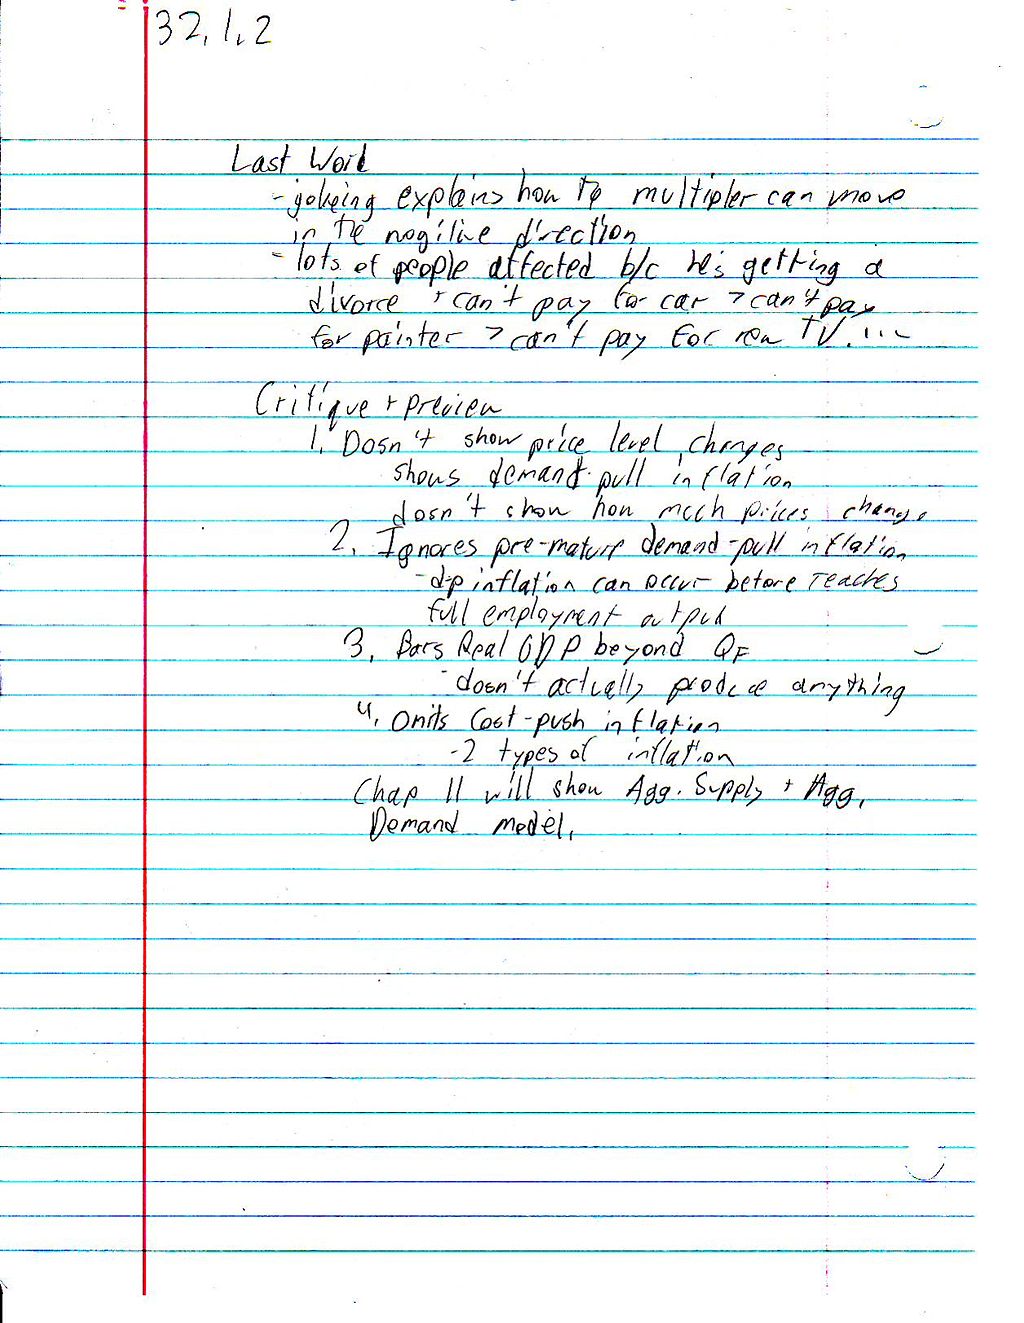 32.1.2
Last Word
- jokeing explains how the multipler can move
in the nogitive direction
- lots of people affected b/c he's getting a
divorce + can't pay for car > can't pay
for painter > can't pay for new TV....
Critique + preview
1. Dosn't show price level changes
shows demand-pull inflation
dosn't show how much prices change
2. Ignores pre-mature demand-pull inflation
- d-p inflation can occur before reaches
full employment output
3. Bars Real GDP beyond QF
- dosn't actually produce anything
4. Omits Cost-push inflation
- 2 types of inflation
Chap 11 will show Agg. Supply + Agg.
Demand model.